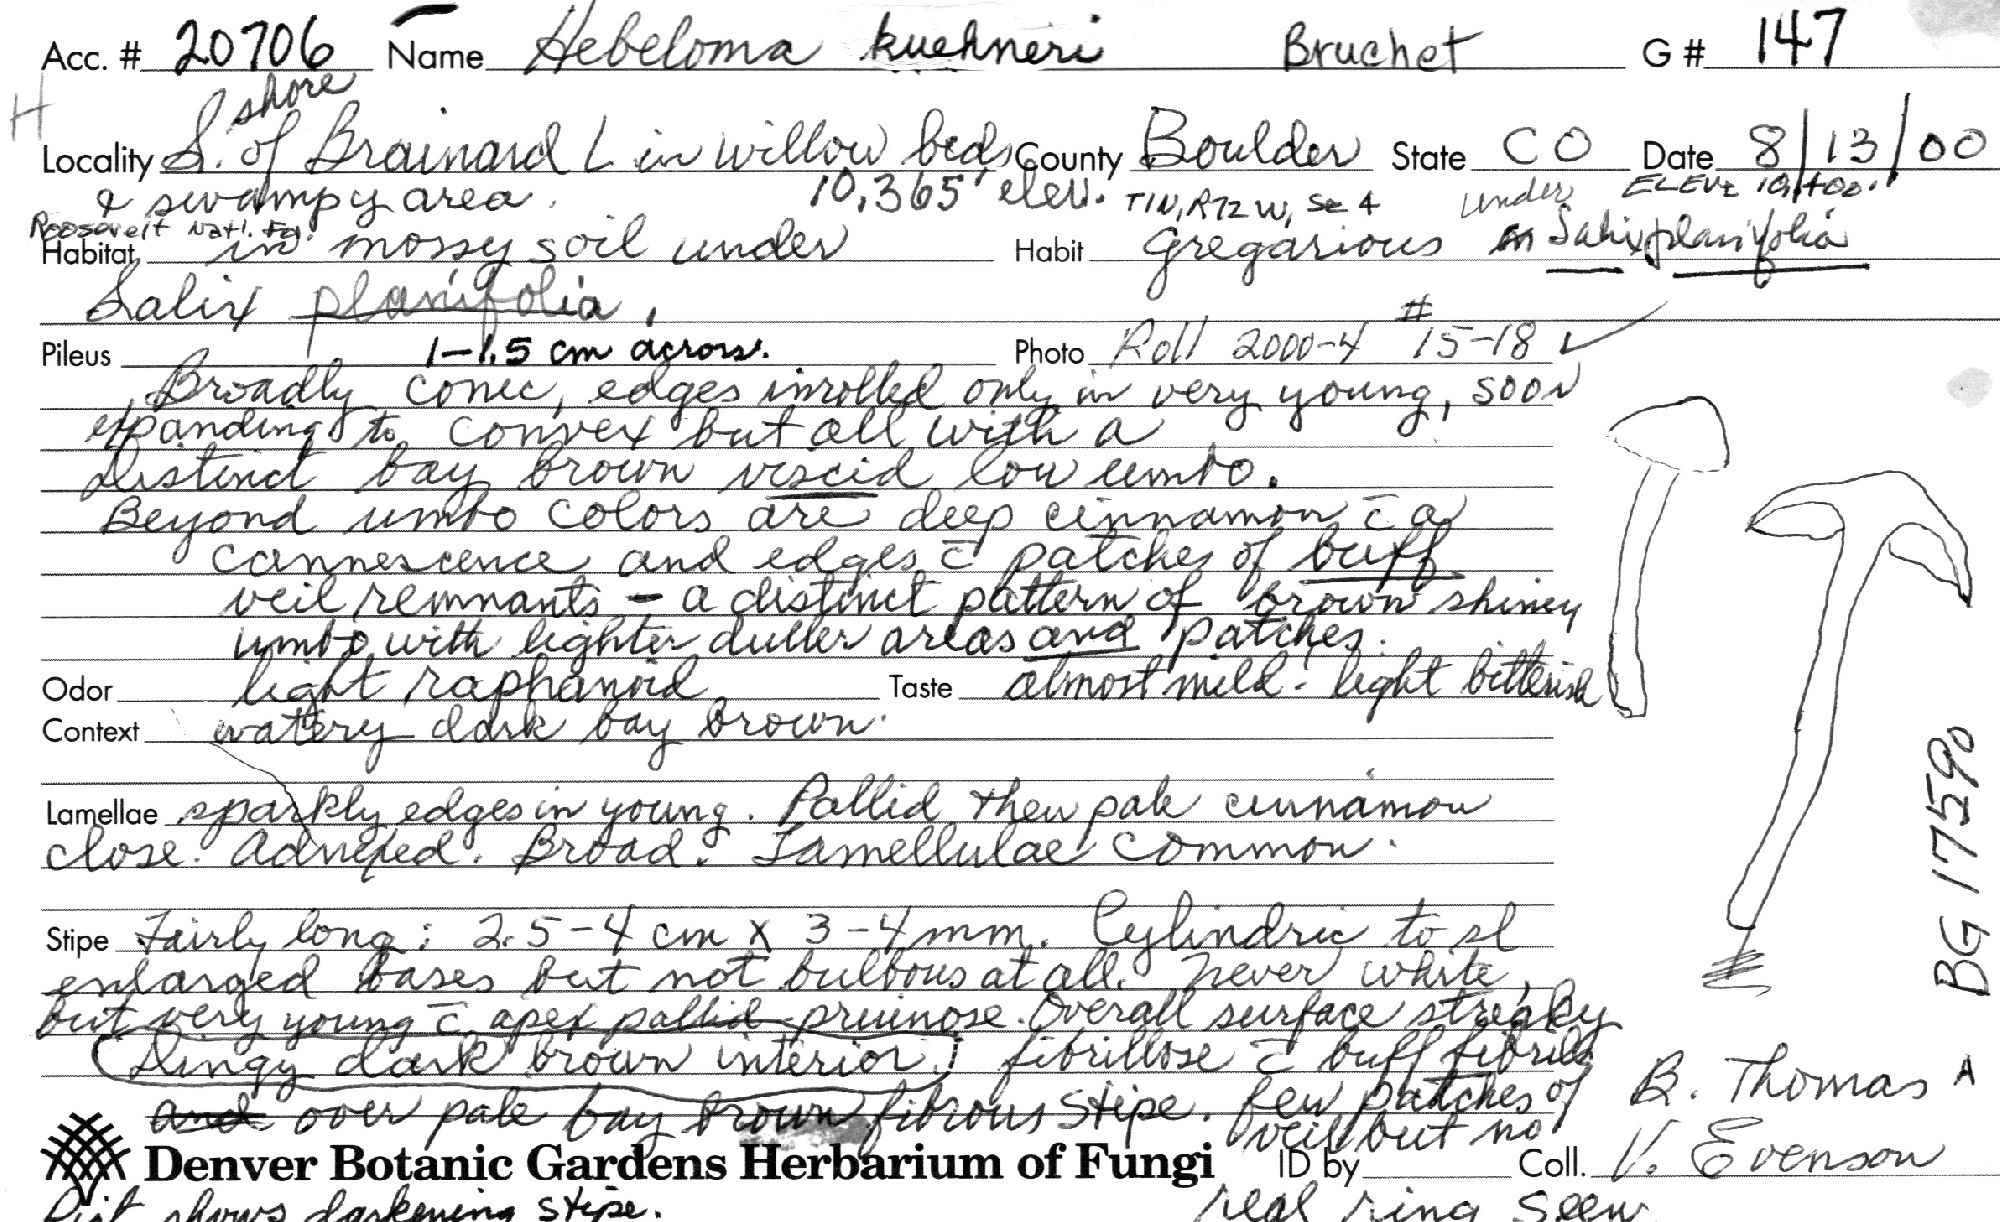 Acc. # 20706 Name Hebeloma kuehneri Bruchet G # 147
H
shore
Locality S. of Brainard L in willow beds County Boulder State CO Date 8/13/00
& swampy area. 10,365' elev. T1N, R72W, Se 4 under ELEV: 10,400.'
Roosevelt Natl. For.
Habitat in mossy soil under Habit Gregarious in Salix planifolia
Salix planifolia,
Pileus 1-1.5 cm across. Photo Roll 2000-4 # 15-18 ✓
Broadly conic, edges inrolled only in very young, soon
expanding to convex but all with a
distinct bay brown viscid low umbo.
Beyond umbo colors are deep cinnamon c̄ a
cannescence and edges c̄ patches of buff
veil remnants - a distinct pattern of brown shiney
umbo with lighter duller areas and patches.
Odor light raphanoid Taste almost mild - light bitterish
Context watery dark bay brown.
Lamellae sparkly edges in young. Pallid then pale cinnamon
close. Adnexed. Broad. Lamellulae common.
Stipe Fairly long: 2.5-4 cm x 3-4 mm. Cylindric to sl
enlarged bases but not bulbous at all. Never white,
but very young c̄ apex pallid pruinose. Overall surface streaky
(Dingy dark brown interior.) fibrillose c̄ buff fibrils
and over pale bay brown fibrous stipe. few patches of
veil but no
real ring seen
Denver Botanic Gardens Herbarium of Fungi ID by Coll. V. Evenson
B. Thomas A
shows darkening stipe.
BG 17590